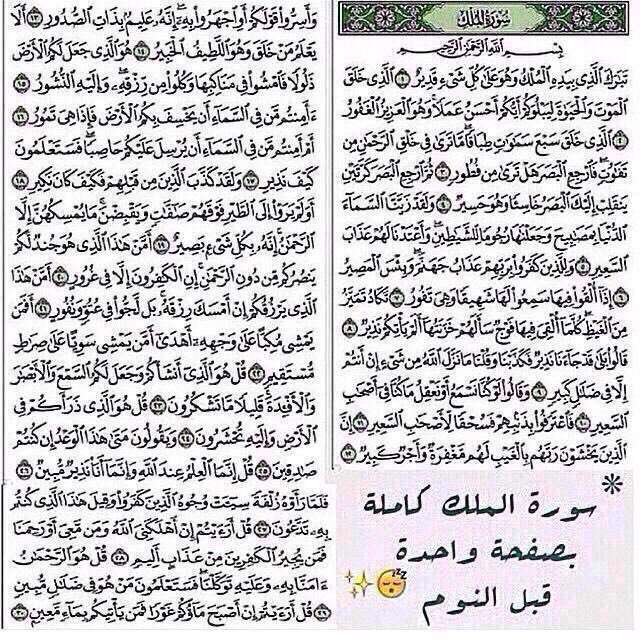 سورة الملك
بسم الله الرحمن الرحيم
تَبَٰرَكَ ٱلَّذِى بِيَدِهِ ٱلْمُلْكُ وَهُوَ عَلَىٰ كُلِّ شَىْءٍ قَدِيرٌ ١ ٱلَّذِى خَلَقَ
ٱلْمَوْتَ وَٱلْحَيَوٰةَ لِيَبْلُوَكُمْ أَيُّكُمْ أَحْسَنُ عَمَلًا وَهُوَ ٱلْعَزِيزُ ٱلْغَفُورُ
٢ ٱلَّذِى خَلَقَ سَبْعَ سَمَٰوَٰتٍ طِبَاقًا مَّا تَرَىٰ فِى خَلْقِ ٱلرَّحْمَٰنِ مِن
تَفَٰوُتٍ فَٱرْجِعِ ٱلْبَصَرَ هَلْ تَرَىٰ مِن فُطُورٍ ٣ ثُمَّ ٱرْجِعِ ٱلْبَصَرَ كَرَّتَيْنِ
يَنقَلِبْ إِلَيْكَ ٱلْبَصَرُ خَاسِئًا وَهُوَ حَسِيرٌ ٤ وَلَقَدْ زَيَّنَّا ٱلسَّمَآءَ
ٱلدُّنْيَا بِمَصَٰبِيحَ وَجَعَلْنَٰهَا رُجُومًا لِّلشَّيَٰطِينِ وَأَعْتَدْنَا لَهُمْ عَذَابَ
ٱلسَّعِيرِ ٥ وَلِلَّذِينَ كَفَرُوا۟ بِرَبِّهِمْ عَذَابُ جَهَنَّمَ وَبِئْسَ ٱلْمَصِيرُ
٦ إِذَآ أُلْقُوا۟ فِيهَا سَمِعُوا۟ لَهَا شَهِيقًا وَهِىَ تَفُورُ ٧ تَكَادُ تَمَيَّزُ
مِنَ ٱلْغَيْظِ كُلَّمَآ أُلْقِىَ فِيهَا فَوْجٌ سَأَلَهُمْ خَزَنَتُهَآ أَلَمْ يَأْتِكُمْ نَذِيرٌ ٨
قَالُوا۟ بَلَىٰ قَدْ جَآءَنَا نَذِيرٌ فَكَذَّبْنَا وَقُلْنَا مَا نَزَّلَ ٱللَّهُ مِن شَىْءٍ إِنْ أَنتُمْ
إِلَّا فِى ضَلَٰلٍ كَبِيرٍ ٩ وَقَالُوا۟ لَوْ كُنَّا نَسْمَعُ أَوْ نَعْقِلُ مَا كُنَّا فِىٓ أَصْحَٰبِ
ٱلسَّعِيرِ ١٠ فَٱعْتَرَفُوا۟ بِذَنۢبِهِمْ فَسُحْقًا لِّأَصْحَٰبِ ٱلسَّعِيرِ ١١ إِنَّ
ٱلَّذِينَ يَخْشَوْنَ رَبَّهُم بِٱلْغَيْبِ لَهُم مَّغْفِرَةٌ وَأَجْرٌ كَبِيرٌ ١٢
وَأَسِرُّوا۟ قَوْلَكُمْ أَوِ ٱجْهَرُوا۟ بِهِۦٓ إِنَّهُۥ عَلِيمٌۢ بِذَاتِ ٱلصُّدُورِ ١٣ أَلَا
يَعْلَمُ مَنْ خَلَقَ وَهُوَ ٱللَّطِيفُ ٱلْخَبِيرُ ١٤ هُوَ ٱلَّذِى جَعَلَ لَكُمُ ٱلْأَرْضَ
ذَلُولًا فَٱمْشُوا۟ فِى مَنَاكِبِهَا وَكُلُوا۟ مِن رِّزْقِهِۦ وَإِلَيْهِ ٱلنُّشُورُ ١٥
ءَأَمِنتُم مَّن فِى ٱلسَّمَآءِ أَن يَخْسِفَ بِكُمُ ٱلْأَرْضَ فَإِذَا هِىَ تَمُورُ ١٦
أَمْ أَمِنتُم مَّن فِى ٱلسَّمَآءِ أَن يُرْسِلَ عَلَيْكُمْ حَاصِبًا فَسَتَعْلَمُونَ
كَيْفَ نَذِيرِ ١٧ وَلَقَدْ كَذَّبَ ٱلَّذِينَ مِن قَبْلِهِمْ فَكَيْفَ كَانَ نَكِيرِ ١٨
أَوَلَمْ يَرَوْا۟ إِلَى ٱلطَّيْرِ فَوْقَهُمْ صَٰٓفَّٰتٍ وَيَقْبِضْنَ مَا يُمْسِكُهُنَّ إِلَّا
ٱلرَّحْمَٰنُ إِنَّهُۥ بِكُلِّ شَىْءٍۭ بَصِيرٌ ١٩ أَمَّنْ هَٰذَا ٱلَّذِى هُوَ جُندٌ لَّكُمْ
يَنصُرُكُم مِّن دُونِ ٱلرَّحْمَٰنِ إِنِ ٱلْكَٰفِرُونَ إِلَّا فِى غُرُورٍ ٢٠ أَمَّنْ هَٰذَا
ٱلَّذِى يَرْزُقُكُمْ إِنْ أَمْسَكَ رِزْقَهُۥ بَل لَّجُّوا۟ فِى عُتُوٍّ وَنُفُورٍ ٢١ أَفَمَن
يَمْشِى مُكِبًّا عَلَىٰ وَجْهِهِۦٓ أَهْدَىٰٓ أَمَّن يَمْشِى سَوِيًّا عَلَىٰ صِرَٰطٍ
مُّسْتَقِيمٍ ٢٢ قُلْ هُوَ ٱلَّذِىٓ أَنشَأَكُمْ وَجَعَلَ لَكُمُ ٱلسَّمْعَ وَٱلْأَبْصَٰرَ
وَٱلْأَفْـِٔدَةَ قَلِيلًا مَّا تَشْكُرُونَ ٢٣ قُلْ هُوَ ٱلَّذِى ذَرَأَكُمْ فِى
ٱلْأَرْضِ وَإِلَيْهِ تُحْشَرُونَ ٢٤ وَيَقُولُونَ مَتَىٰ هَٰذَا ٱلْوَعْدُ إِن كُنتُمْ
صَٰدِقِينَ ٢٥ قُلْ إِنَّمَا ٱلْعِلْمُ عِندَ ٱللَّهِ وَإِنَّمَآ أَنَا۠ نَذِيرٌ مُّبِينٌ ٢٦
فَلَمَّا رَأَوْهُ زُلْفَةً سِيٓـَٔتْ وُجُوهُ ٱلَّذِينَ كَفَرُوا۟ وَقِيلَ هَٰذَا ٱلَّذِى كُنتُم
بِهِۦ تَدَّعُونَ ٢٧ قُلْ أَرَءَيْتُمْ إِنْ أَهْلَكَنِىَ ٱللَّهُ وَمَن مَّعِىَ أَوْ رَحِمَنَا
فَمَن يُجِيرُ ٱلْكَٰفِرِينَ مِنْ عَذَابٍ أَلِيمٍ ٢٨ قُلْ هُوَ ٱلرَّحْمَٰنُ
ءَامَنَّا بِهِۦ وَعَلَيْهِ تَوَكَّلْنَا فَسَتَعْلَمُونَ مَنْ هُوَ فِى ضَلَٰلٍ مُّبِينٍ
٢٩ قُلْ أَرَءَيْتُمْ إِنْ أَصْبَحَ مَآؤُكُمْ غَوْرًا فَمَن يَأْتِيكُم بِمَآءٍ مَّعِينٍۭ ٣٠
* سورة الملك كاملة
بصفحة واحدة
قبل النوم 😴✨